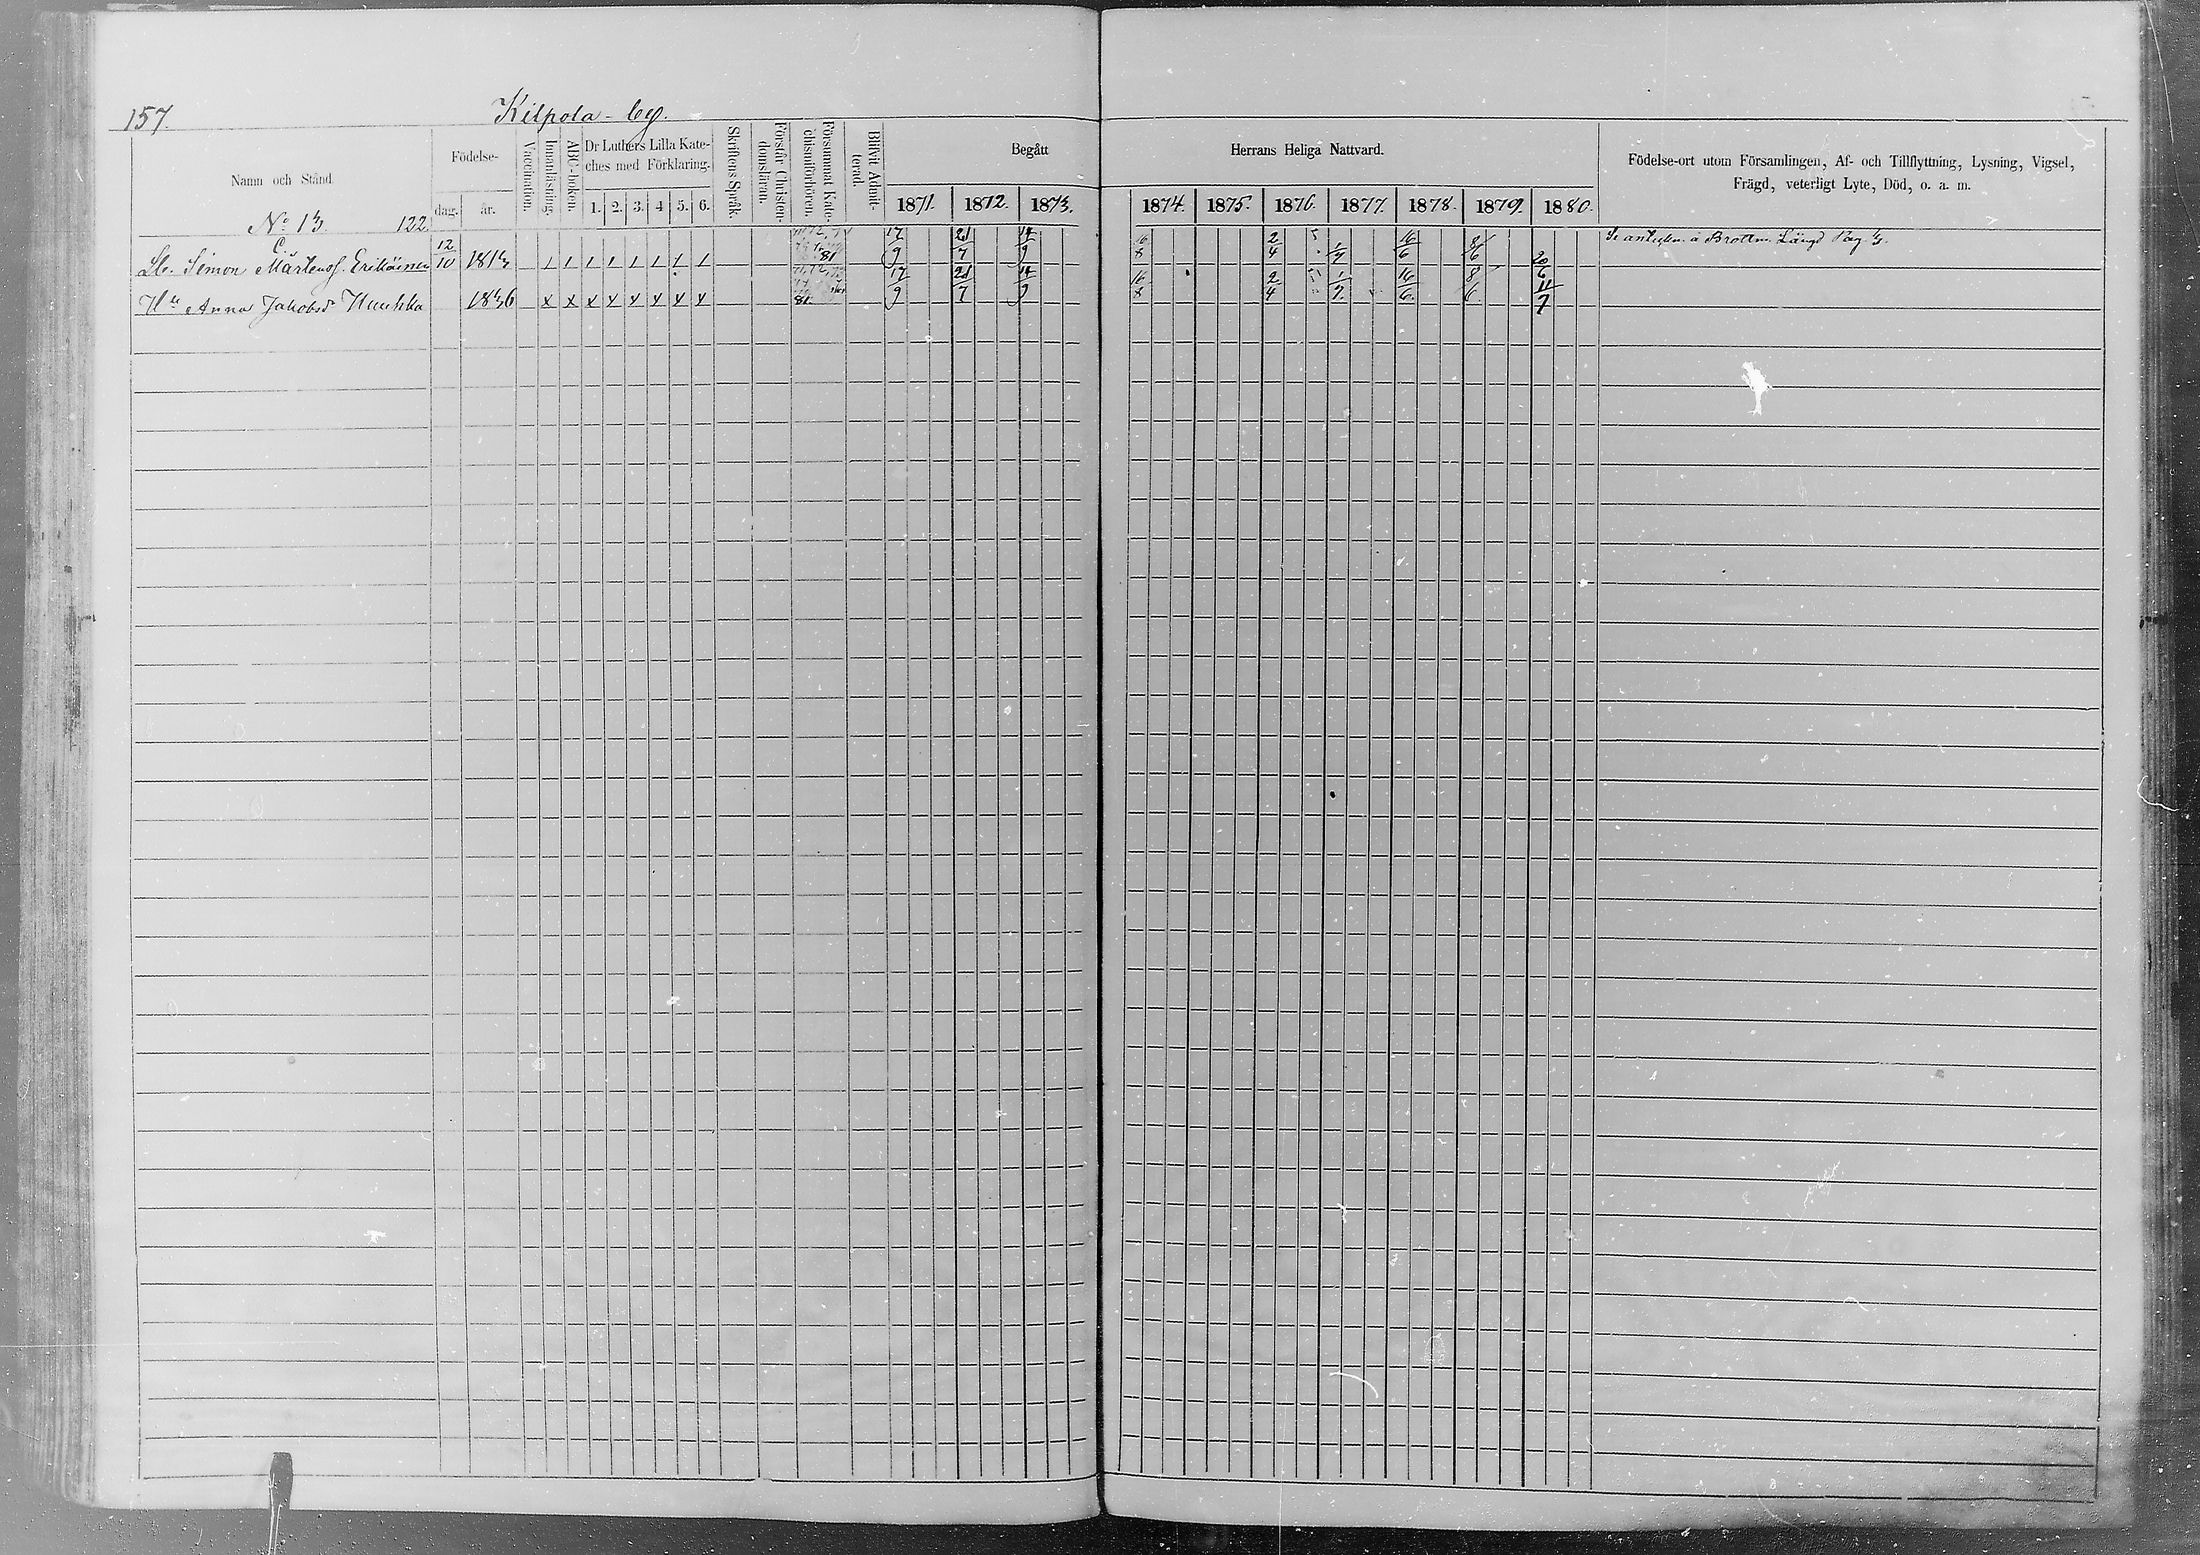 157.
Kilpola-by.
Namn och Stånd.
Födelse-
dag. år.
Vaccination.
Innanläsning.
ABC-boken.
Dr Luthers Lilla Kate-
ches med Förklaring.
1. 2. 3. 4 5. 6.
Skriftens Språk.
Förstår Christen-
domsläran.
Försummat Kate-
chismiförhören.
Blifvit Admit-
terad.
Begått
1871. 1872. 1873.
Herrans Heliga Nattvard.
1874. 1875. 1876. 1877. 1878. 1879. 1880.
Födelse-ort utom Församlingen, Af- och Tillflyttning, Lysning, Vigsel,
Frägd, veterligt Lyte, Död, o. a. m.
122
C.
Simon Mårtenss. Erikäinen 12/10 1 1 1 1 1 1 1 1 81 17/9 21/7 14/9 16/8 2/4 1/7 16/6 8/6 20/6 Brottm. Längd Pag.
Hu Anna Jakobsdr x x x x x x x x 81 17/9 21/7 14/9 16/8 2/4 1/7 16/6 8/6 11/7